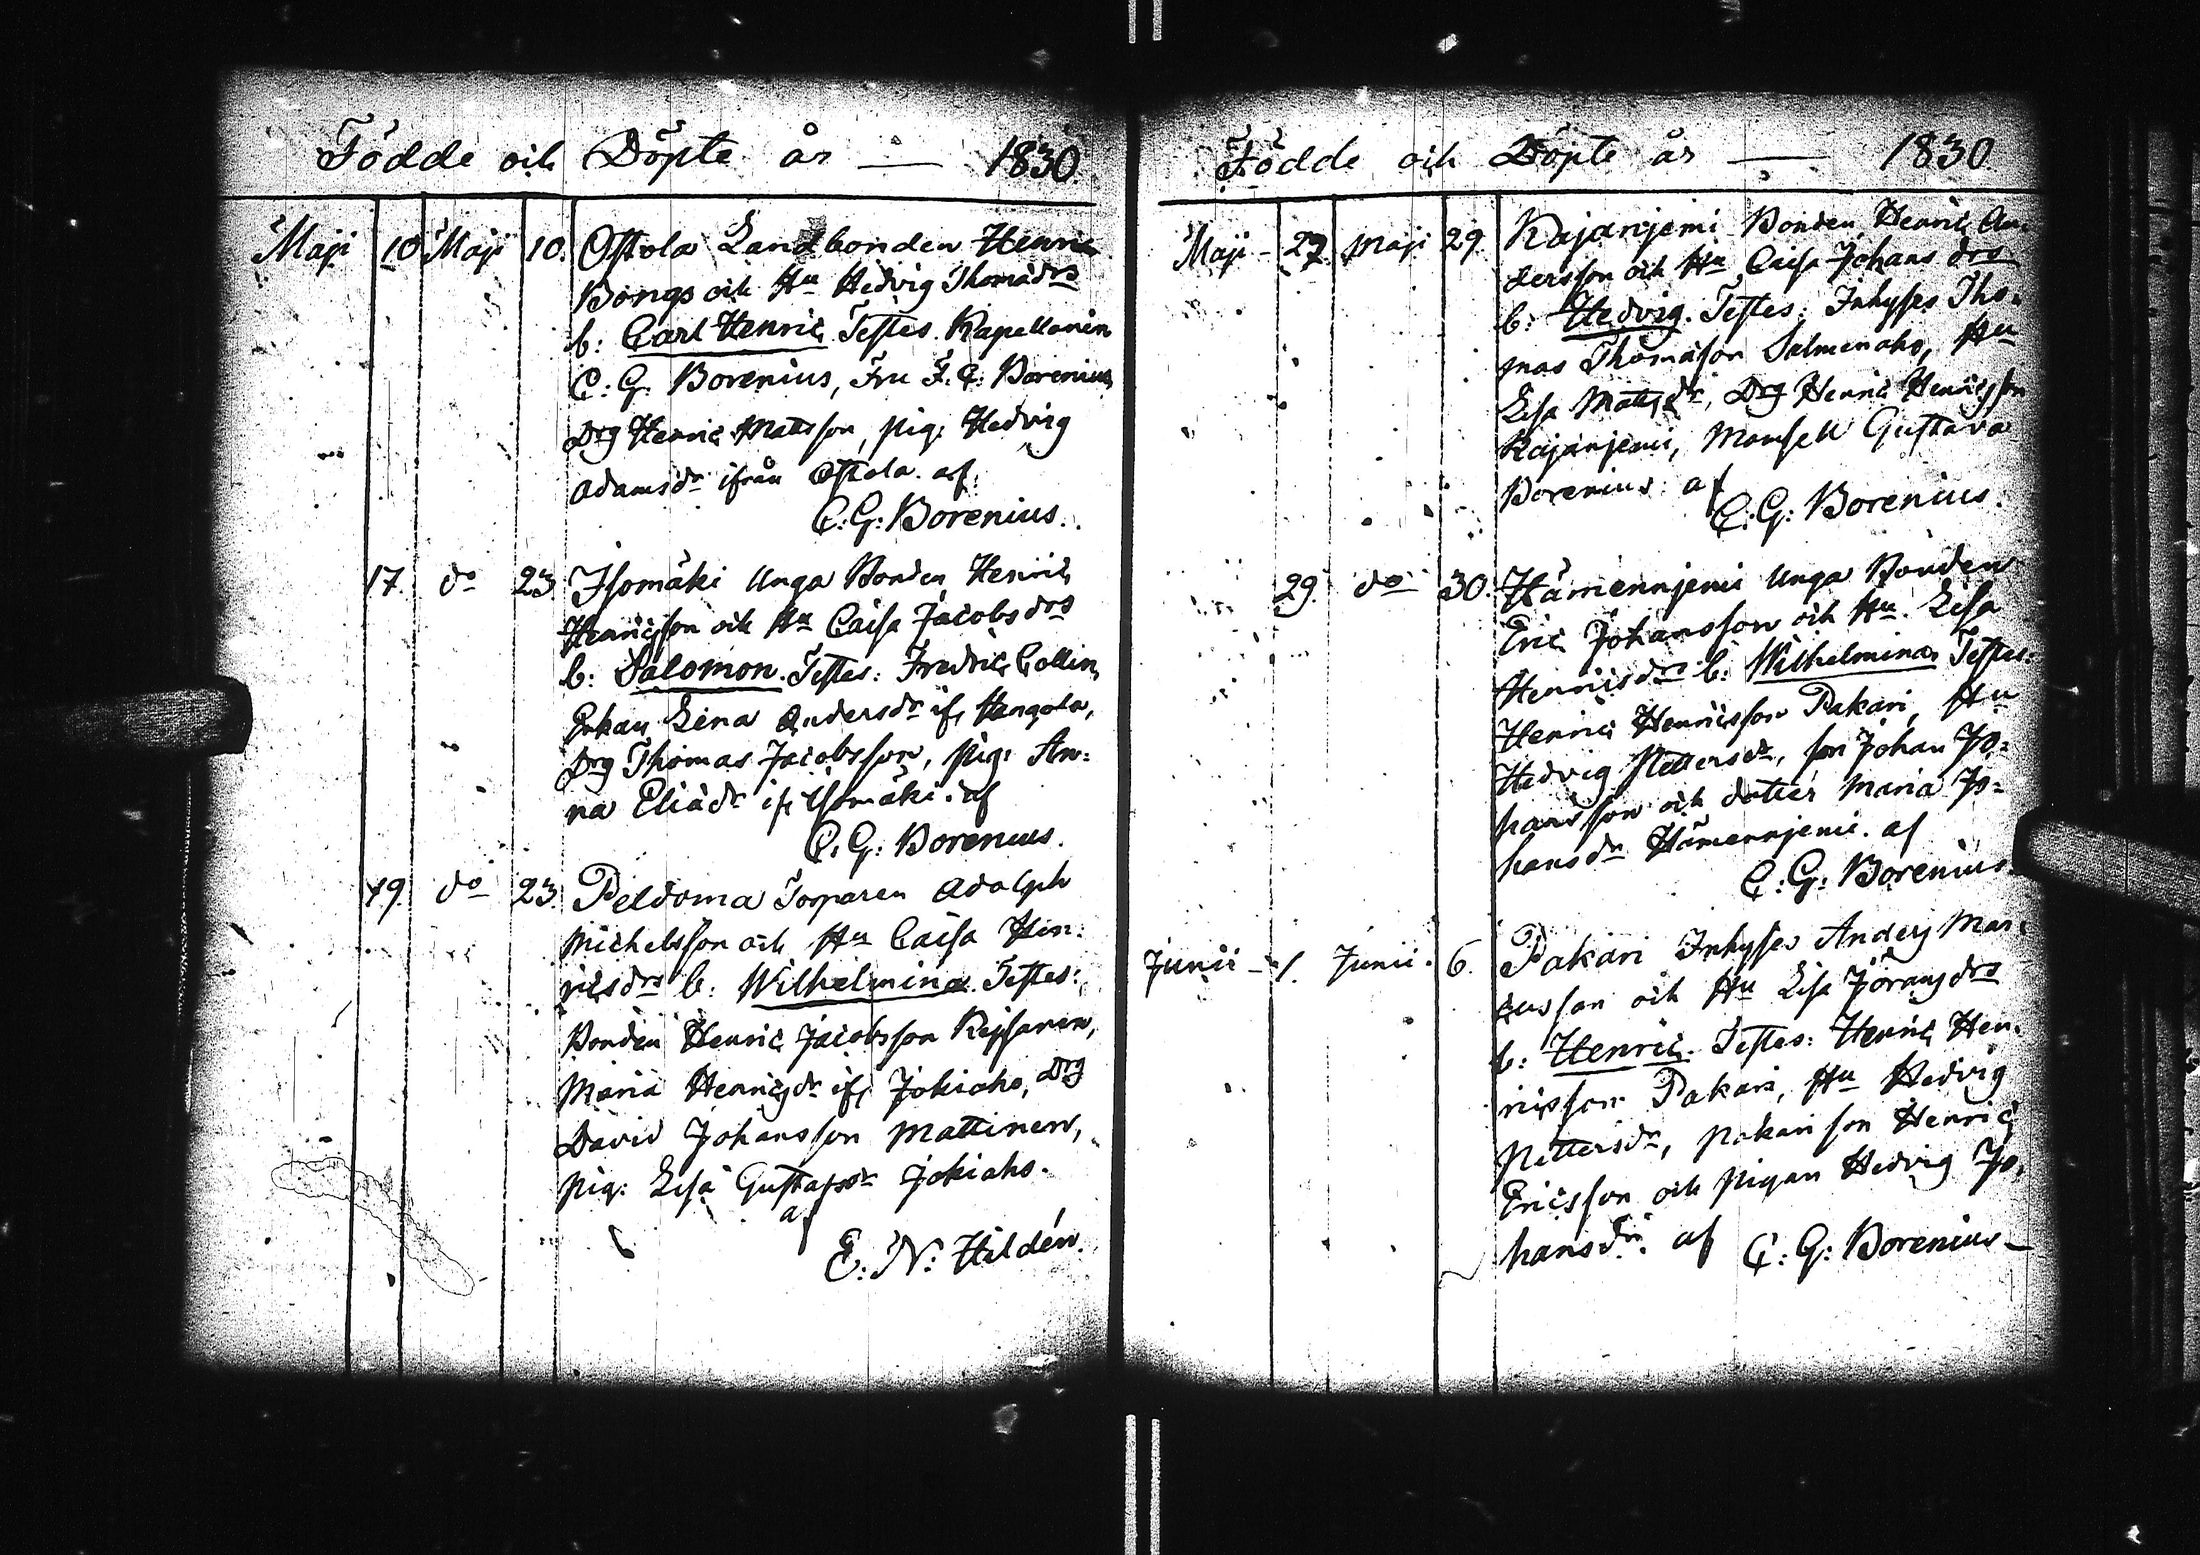 Födde och Döpte år — 1830.
Maji 10 Maji 10. Ostola Landbonden Henric
Bongs och Hu Hedvig Thomædrs
b: Carl Henric. Testes. Kapellanen
C. G. Borenius, Fru F: C: Borenius,
Drg Henric Mattsson, pig: Hedvig
Adamsdr ifrån Ostola. af
C: G: Borenius.
17. do 23 Isomäki Unga Bonden Henric
Henricsson och Hu Caisa Jacobsdrs
b: Salomon. Testes: Fredric Collin,
Enkan Lena Andersdr if. Hangola,
Drg Thomas Jacobsson, pig: An-
na Eliædr if. Isomäki. af
C. G: Borenius.
19. do 23. Peldoma Torparen Adolph
Michelsson och Hu Caisa Hen-
ricsdrs b: Wilhelmina. Testes:
Bonden Henric Jacobsson
Maria Henricsdr if. Jokiaho, Drg
David Johansson Mattinen,
pig: Lisa Gustafsdr Jokiaho.
af
E: N: Hildén.
Födde och Döpte år — 1830
Maji - 27. Maji 29. Rajanjemi Bonden Henric An-
dersson och Hu Caisa Johansdrs
b: Hedvig. Testes: Inhyses Tho-
mas Thomasson Salmenaho, Hu
Lisa Matsdr, Drg Henric Henricsson
Rajanjemi, Mamsell Gustava
Borenius. af
C: G: Borenius.
29. do 30. Hämeennjemi Unga Bonden
Eric Johansson och Hu. Lisa
Henricsdrs b: Wilhelmina. Testes:
Henric Henricsson Pakari, Hu
Hedvig Pettersdr, son Johan Jo-
hansson och dotter Maria Jo-
hansdr Hämennjemi. af
C: G: Borenius.
Junii - 1. Junii. 6. Pakari Inhyses Anders Mar-
cusson och Hu Lisa Göransdrs
b: Henric. Testes: Henric Hen-
ricsson Pakari, Hu Hedvig
Pettersdr, Pakari son Henric
Ericsson och pigan Hedvig Jo-
hansdr. af C: G: Borenius —